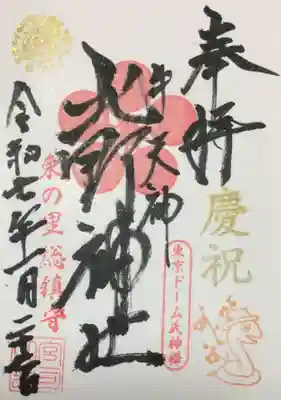 奉拝
慶祝
牛天神
北野神社
東京ドーム氏神様
粂の里総鎮守
令和七年一月二十一日